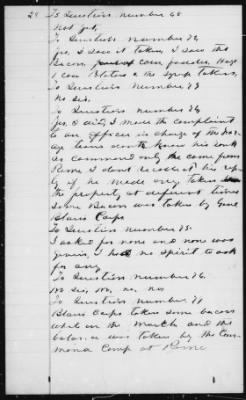 To Question number 68
Not yet,
To Question number 72
yes, I saw it taken, I saw the
Bacon, corn, fodder, Hogs
1 cow Blades & the Syrup taken,
To Question number 73
No sir,
To Question number 74
yes, I did, I made the complaint
to an officer in charge of the
team dont know his rank
or command only came from
Rome I dont recollect his
if he made any taken
the property at different times
some Bacon was taken by Genl
Blairs Corps
To Question number 75.
I asked for none and none was
given, I had no spirit to ask
for any
To Question number 76.
No sir, No, no, no
To Question number 77
Blairs Corps taken some bacon
while on the march and the
balance was taken by the
Camp at Rome